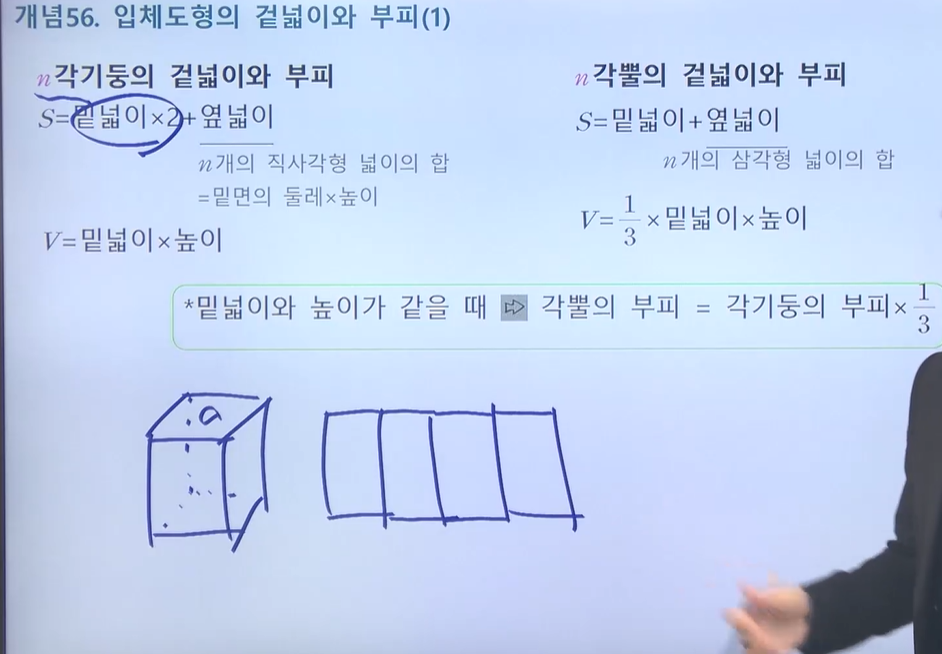 개념56. 입체도형의 겉넓이와 부피(1)
n각기둥의 겉넓이와 부피
S=밑넓이×2+옆넓이
n개의 직사각형 넓이의 합
=밑면의 둘레×높이
V=밑넓이×높이
n각뿔의 겉넓이와 부피
S=밑넓이+옆넓이
n개의 삼각형 넓이의 합
V=1/3×밑넓이×높이
*밑넓이와 높이가 같을 때 ⇨ 각뿔의 부피 = 각기둥의 부피×1/3
a